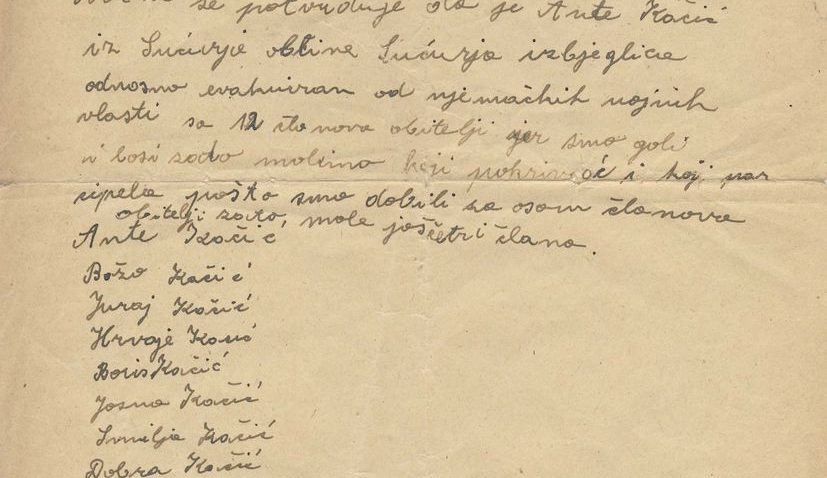 se potvrđuje da je Ante Kačić
iz Sućurja obćine Sućurja izbjeglica
odnosno evakuiran od njemačkih vojnih
vlasti sa 12 članova obitelji jer smo goli
i bosi zato molimo koji pokrivač i koji par
cipela pošto smo dobili za osam članova
obitelji zato mole još četri člana.
Ante Kačić
Božo Kačić
Juraj Kačić
Hrvoje Kačić
Boris Kačić
Josna Kačić
Smilja Kačić
Dobra Kačić